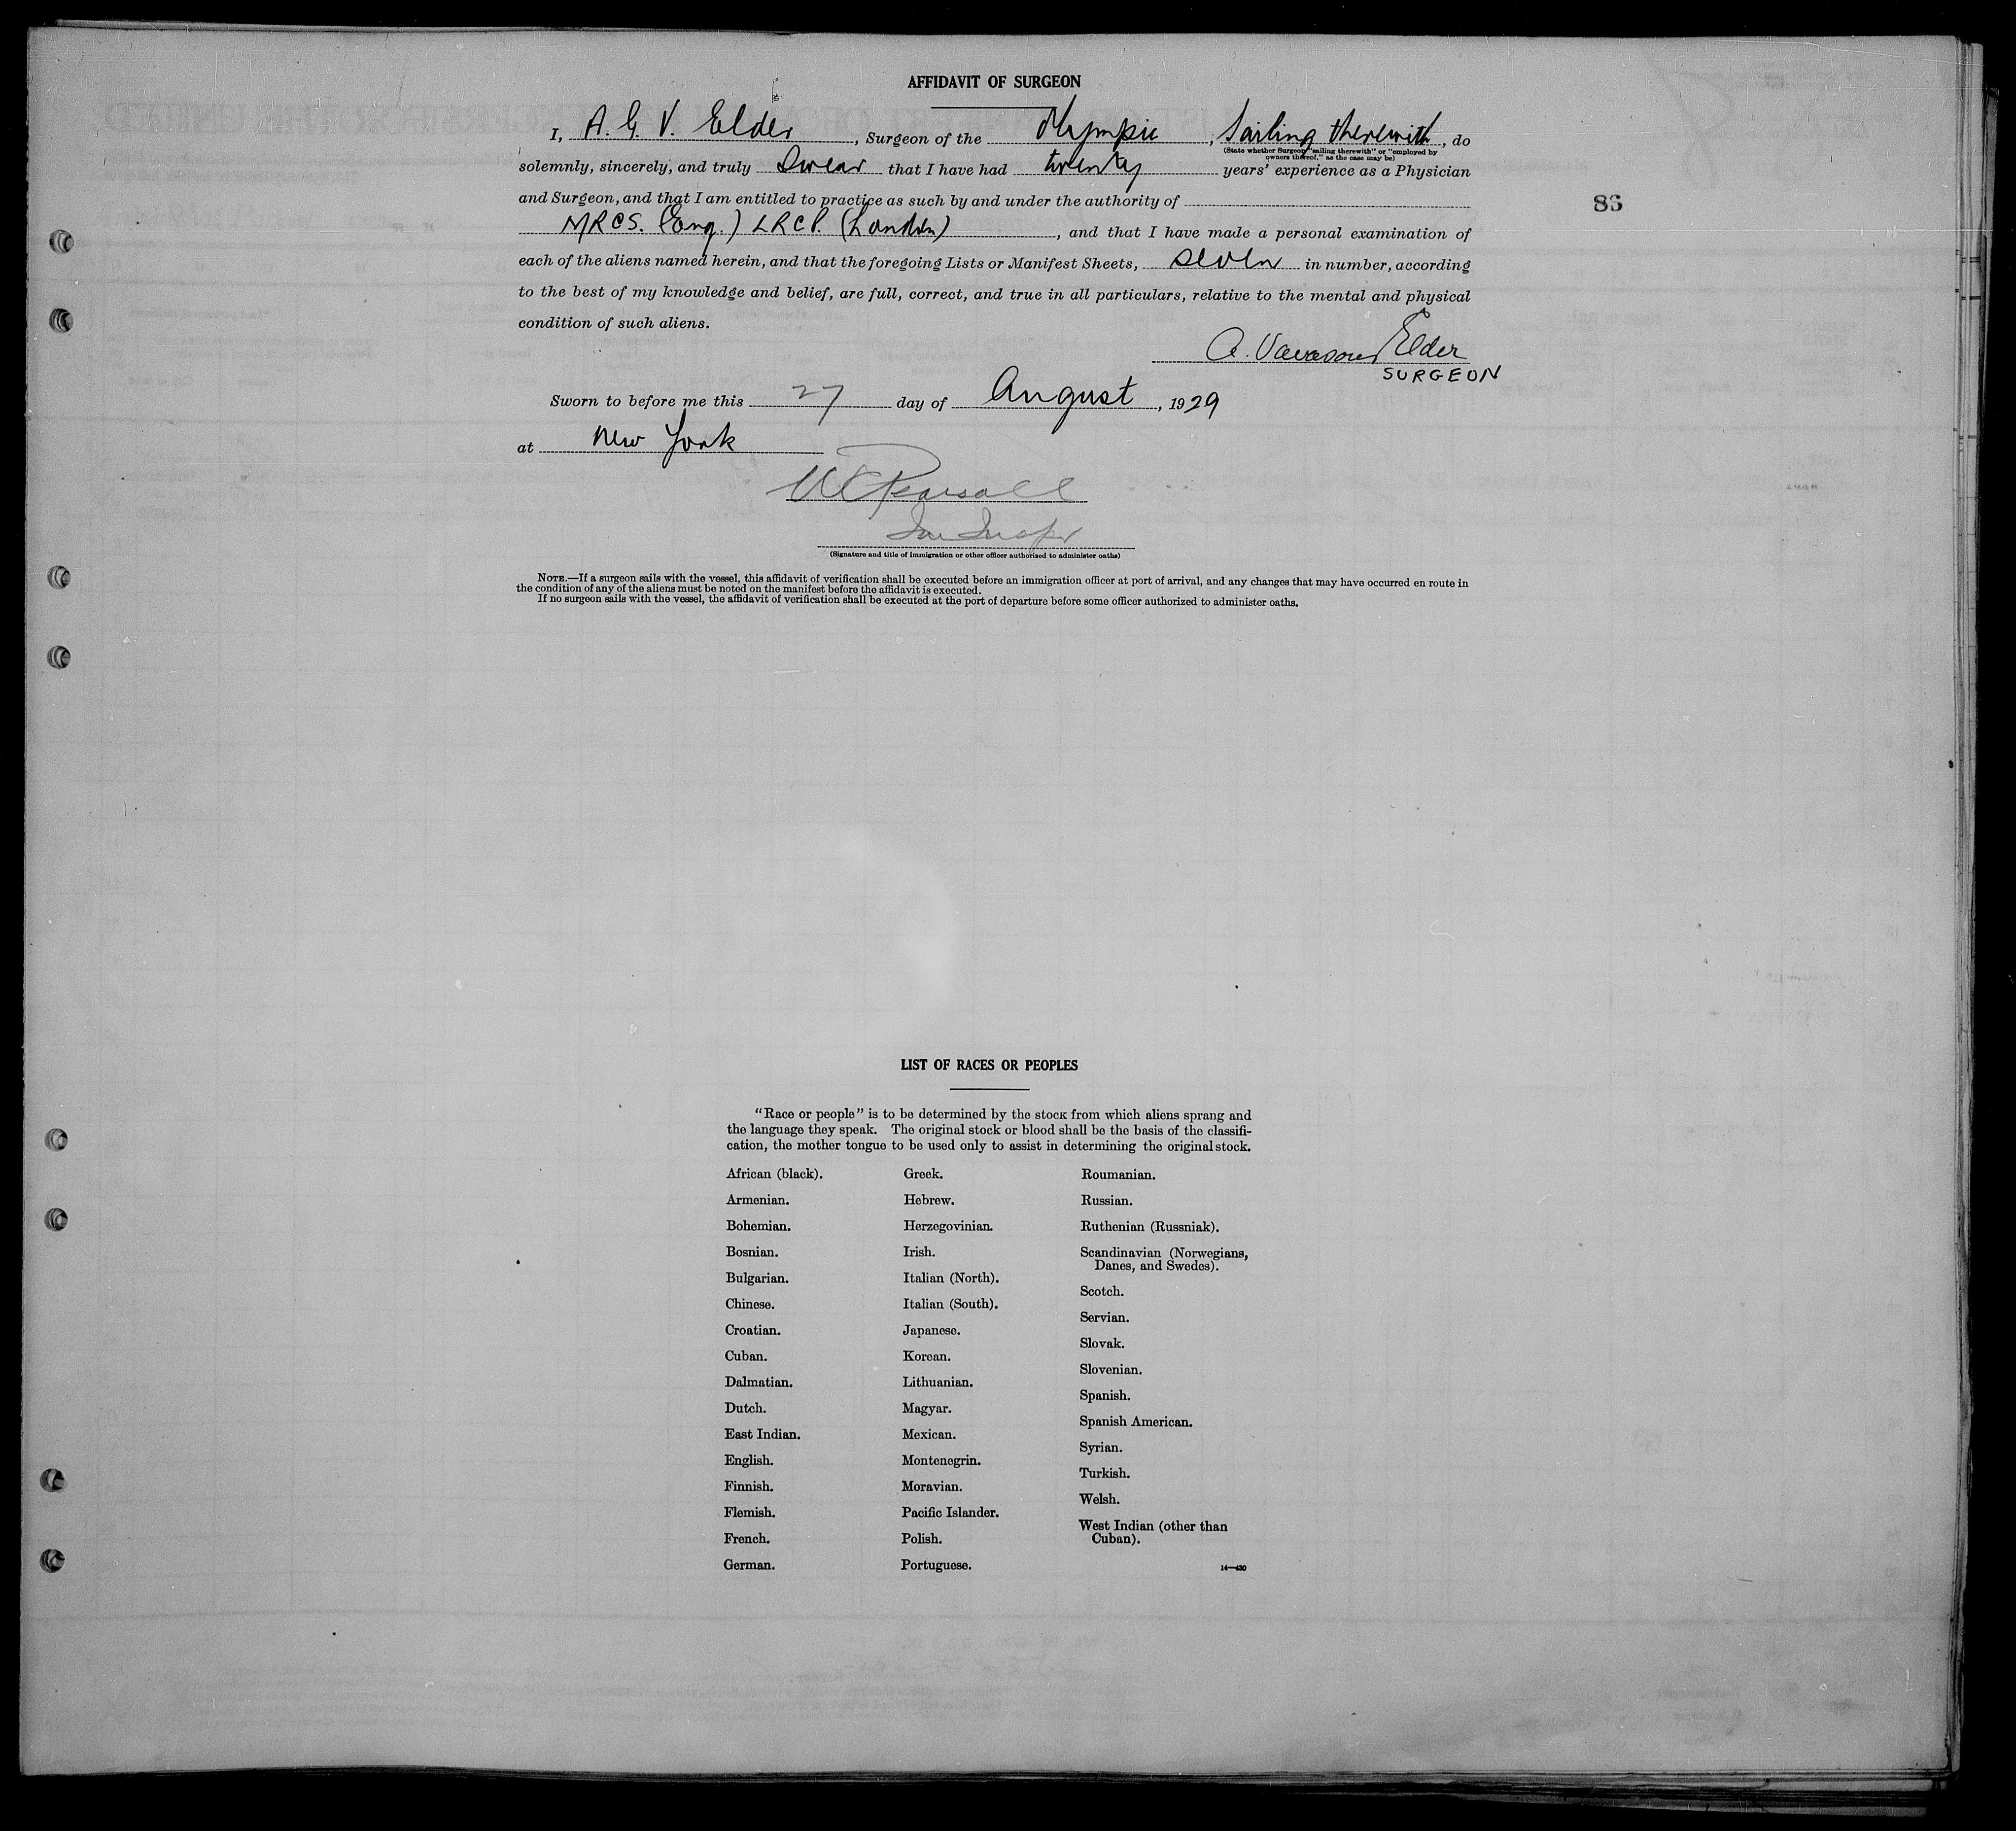 AFFIDAVIT OF SURGEON
I, A. G. V. Elder, Surgeon of the Olympic, Sailing therewith, do
(State whether Surgeon "sailing therewith" or "employed by
owners thereof," as the case may be)
solemnly, sincerely, and truly Swear that I have had twenty years' experience as a Physician
and Surgeon, and that I am entitled to practice as such by and under the authority of
86
MRCS. (Eng.) LRCP. (London), and that I have made a personal examination of
each of the aliens named herein, and that the foregoing Lists or Manifest Sheets, seven in number, according
to the best of my knowledge and belief, are full, correct, and true in all particulars, relative to the mental and physical
condition of such aliens.
A. Vavasour Elder
SURGEON
Sworn to before me this 27 day of August, 1929
at New York
Pearsall
(Signature and title of immigration or other officer authorized to administer oaths)
NOTE.—If a surgeon sails with the vessel, this affidavit of verification shall be executed before an immigration officer at port of arrival, and any changes that may have occurred en route in
the condition of any of the aliens must be noted on the manifest before the affidavit is executed.
If no surgeon sails with the vessel, the affidavit of verification shall be executed at the port of departure before some officer authorized to administer oaths.
LIST OF RACES OR PEOPLES
"Race or people" is to be determined by the stock from which aliens sprang and
the language they speak. The original stock or blood shall be the basis of the classifi-
cation, the mother tongue to be used only to assist in determining the original stock.
African (black).
Armenian.
Bohemian.
Bosnian.
Bulgarian.
Chinese.
Croatian.
Cuban.
Dalmatian.
Dutch.
East Indian.
English.
Finnish.
Flemish.
French.
German.
Greek.
Hebrew.
Herzegovinian.
Irish.
Italian (North).
Italian (South).
Japanese.
Korean.
Lithuanian.
Magyar.
Mexican.
Montenegrin.
Moravian.
Pacific Islander.
Polish.
Portuguese.
Roumanian.
Russian.
Ruthenian (Russniak).
Scandinavian (Norwegians,
Danes, and Swedes).
Scotch.
Servian.
Slovak.
Slovenian.
Spanish.
Spanish American.
Syrian.
Turkish.
Welsh.
West Indian (other than
Cuban).
14—430